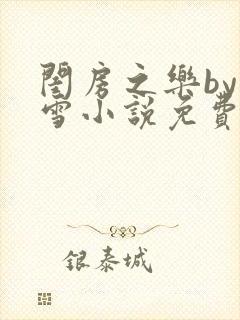 閨房之樂by
雪小説免費
銀泰城